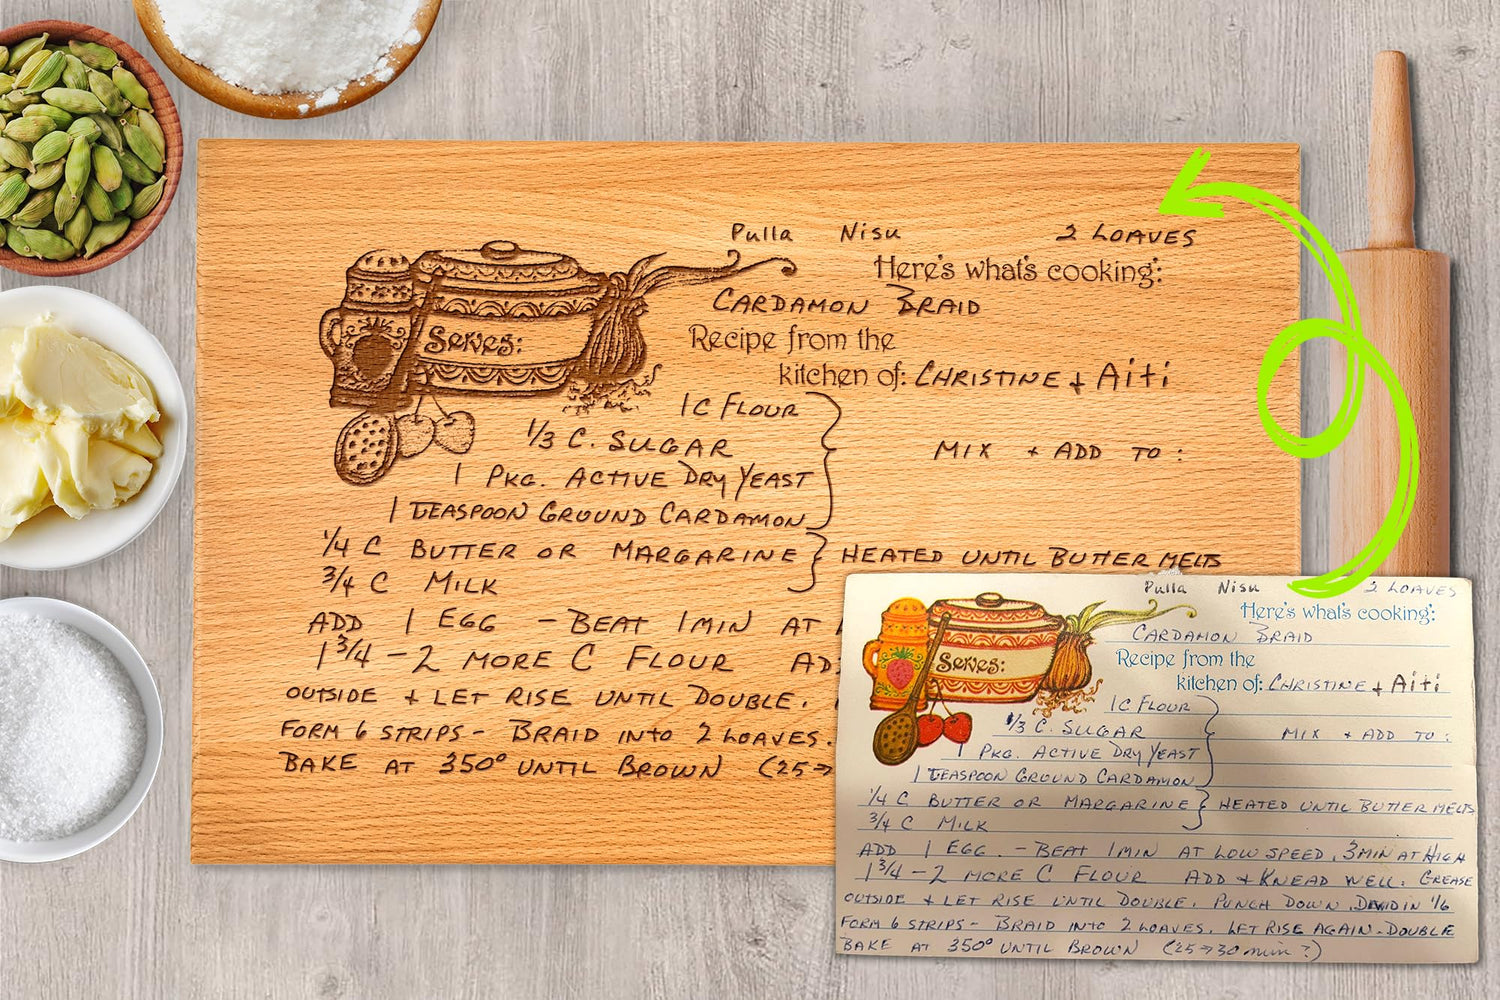 Pulla Nisu 2 LOAVES
Here's what's cooking:
CARDAMON BRAID
Recipe from the
kitchen of: CHRISTINE & Aiti
Serves:
1 C FLOUR
1/3 C. SUGAR
MIX + ADD TO:
1 PKG. ACTIVE DRY YEAST
1 TEASPOON GROUND CARDAMON
1/4 C BUTTER OR MARGARINE } HEATED UNTIL BUTTER MELTS
3/4 C MILK
ADD 1 EGG - BEAT 1 MIN AT
1 3/4 - 2 MORE C FLOUR AD
OUTSIDE + LET RISE UNTIL DOUBLE.
FORM 6 STRIPS - BRAID INTO 2 LOAVES.
BAKE AT 350° UNTIL BROWN (25→
Pulla Nisu 2 LOAVES
Here's what's cooking:
CARDAMON BRAID
Recipe from the
kitchen of: CHRISTINE & Aiti
Serves:
1 C FLOUR
1/3 C. SUGAR
MIX + ADD TO:
1 PKG. ACTIVE DRY YEAST
1 TEASPOON GROUND CARDAMON
1/4 C BUTTER OR MARGARINE } HEATED UNTIL BUTTER MELTS
3/4 C MILK
ADD 1 EGG. - BEAT 1 MIN AT LOW SPEED, 3 MIN AT HIGH
1 3/4 - 2 MORE C FLOUR ADD + KNEAD WELL. GREASE
OUTSIDE + LET RISE UNTIL DOUBLE. PUNCH DOWN. DIVID IN 1/6
FORM 6 STRIPS - BRAID INTO 2 LOAVES. LET RISE AGAIN - DOUBLE
BAKE AT 350° UNTIL BROWN (25→30 min ?)